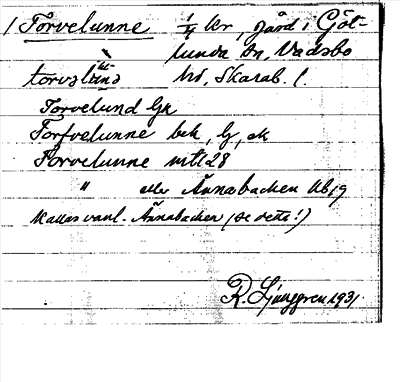 1 Torvelunne 1/4 kr, gård i Göt-
lunda sn, Vadsbo
torvəlùnə hd, Skarab. l.
Torvelund Gk
Torfvelunne bek, lj, ek
Torvelunne mtl 28
" eller Ännabacken Ub, 9
Kallas vanl. Ännabacken (se detta!)
R. Ljunggren 1931